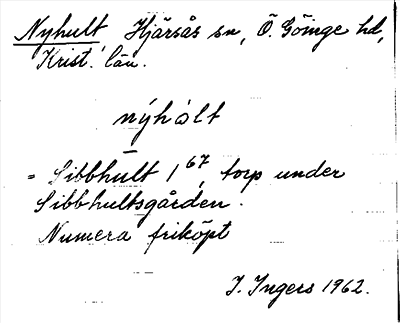 Nyhult Hjärsås sn, Ö. Göinge hd,
Krist. län.
nýhòlt
= Sibbhult 1⁶⁷, torp under
Sibbhultsgården.
Numera friköpt
I. Ingers 1962.